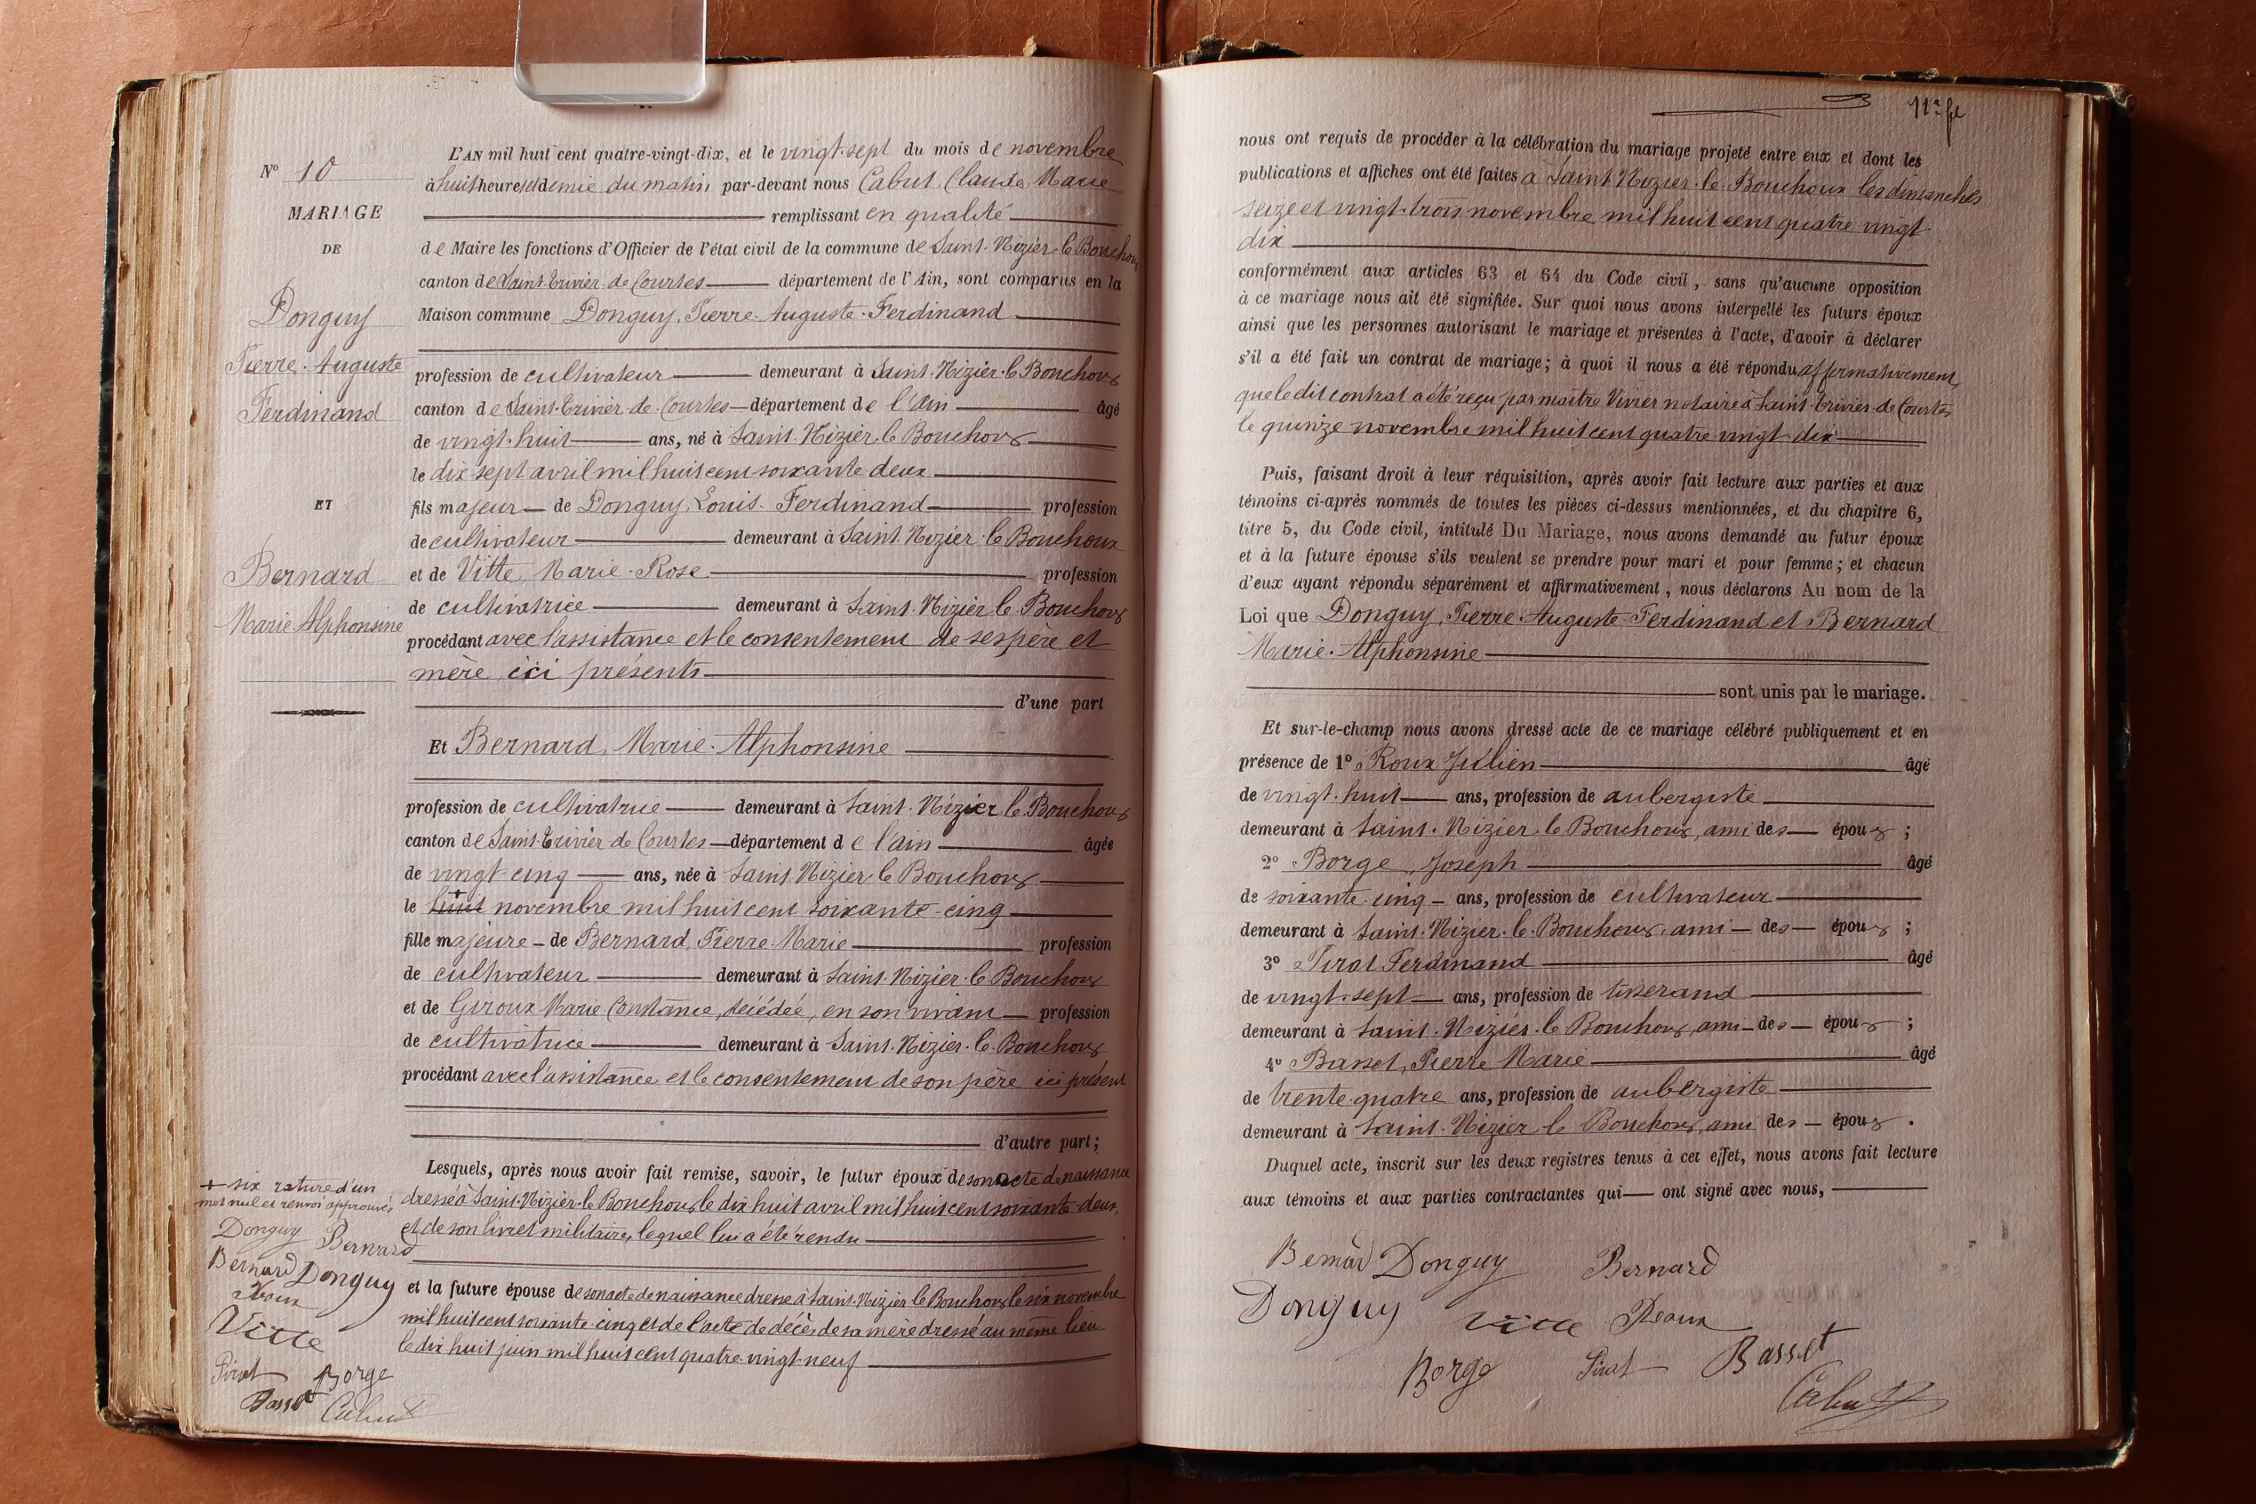 N° 10
MARIAGE
DE
Donguy
Pierre-Auguste
Ferdinand
ET
Bernard
Marie Alphonsine
L'AN mil huit cent quatre-vingt-dix, et le vingt-sept du mois de novembre
à huit heures et demie du matin par-devant nous Cabut, Claude, Marie
remplissant en qualité
de Maire les fonctions d'Officier de l'état civil de la commune de Saint-Nizier-le-Bouchoux
canton de Saint-Trivier-de-Courtes département de l'Ain, sont comparus en la
Maison commune Donguy, Pierre-Auguste-Ferdinand
profession de cultivateur demeurant à Saint-Nizier-le-Bouchoux
canton de Saint-Trivier-de-Courtes département de l'Ain âgé
de vingt-huit ans, né à Saint-Nizier-le-Bouchoux
le dix sept avril mil huit cent soixante deux
fils majeur de Donguy, Louis-Ferdinand profession
de cultivateur demeurant à Saint-Nizier-le-Bouchoux
et de Vitte, Marie-Rose profession
de cultivatrice demeurant à Saint-Nizier-le-Bouchoux
procédant avec l'assistance et le consentement de ses père et
mère ici présents
d'une part
Et Bernard, Marie-Alphonsine
profession de cultivatrice demeurant à Saint-Nizier-le-Bouchoux
canton de Saint-Trivier-de-Courtes département de l'ain âgée
de vingt-cinq ans, née à Saint-Nizier-le-Bouchoux
le huit + novembre mil huit cent soixante-cinq
fille majeure de Bernard, Pierre-Marie profession
de cultivateur demeurant à Saint-Nizier-le-Bouchoux
et de Giroux Marie Constance, décédée, en son vivant profession
de cultivatrice demeurant à Saint-Nizier-le-Bouchoux
procédant avec l'assistance et le consentement de son père ici présent
d'autre part;
Lesquels, après nous avoir fait remise, savoir, le futur époux de son acte de naissance
dressé à Saint-Nizier-le-Bouchoux le dix huit avril mil huit cent soixante-deux,
et de son livret militaire, lequel lui a été rendu
et la future épouse de son acte de naissance dressé à Saint-Nizier-le-Bouchoux le six novembre
mil huit cent soixante-cinq et de l'acte de décès de sa mère dressé au même lieu
le dix huit juin mil huit cent quatre-vingt-neuf
+ six rature d'un
mot nul et renvoi approuvés
Donguy Bernard
Bernard Donguy
Roux
Vitte
Pirat Borge
Basset Cabut
11e ft
nous ont requis de procéder à la célébration du mariage projeté entre eux et dont les
publications et affiches ont été faites à Saint-Nizier-le-Bouchoux les dimanches
seize et vingt-trois novembre mil huit cent quatre vingt-
dix
conformément aux articles 63 et 64 du Code civil, sans qu'aucune opposition
à ce mariage nous ait été signifiée. Sur quoi nous avons interpellé les futurs époux
ainsi que les personnes autorisant le mariage et présentes à l'acte, d'avoir à déclarer
s'il a été fait un contrat de mariage; à quoi il nous a été répondu affirmativement,
que le dit contrat a été reçu par maître Vivier notaire à Saint-Trivier-de-Courtes
le quinze novembre mil huit cent quatre vingt-dix
Puis, faisant droit à leur réquisition, après avoir fait lecture aux parties et aux
témoins ci-après nommés de toutes les pièces ci-dessus mentionnées, et du chapitre 6,
titre 5, du Code civil, intitulé Du Mariage, nous avons demandé au futur époux
et à la future épouse s'ils veulent se prendre pour mari et pour femme; et chacun
d'eux ayant répondu séparément et affirmativement, nous déclarons Au nom de la
Loi que Donguy, Pierre-Auguste-Ferdinand et Bernard
Marie-Alphonsine
sont unis par le mariage.
Et sur-le-champ nous avons dressé acte de ce mariage célébré publiquement et en
présence de 1° Roux Julien âgé
de vingt-huit ans, profession de aubergiste
demeurant à Saint-Nizier-le-Bouchoux, ami des époux;
2° Borge, Joseph âgé
de soixante-cinq ans, profession de cultivateur
demeurant à Saint-Nizier-le-Bouchoux, ami des époux;
3° Pirat Ferdinand âgé
de vingt-sept ans, profession de tisserand
demeurant à Saint-Nizier-le-Bouchoux, ami des époux;
4° Basset, Pierre Marie âgé
de trente-quatre ans, profession de aubergiste
demeurant à Saint-Nizier-le-Bouchoux, ami des époux.
Duquel acte, inscrit sur les deux registres tenus à cet effet, nous avons fait lecture
aux témoins et aux parties contractantes qui ont signé avec nous,
Bernard Donguy Bernard
Donguy Vitte Roux
Borge Pirat Basset
Cabut